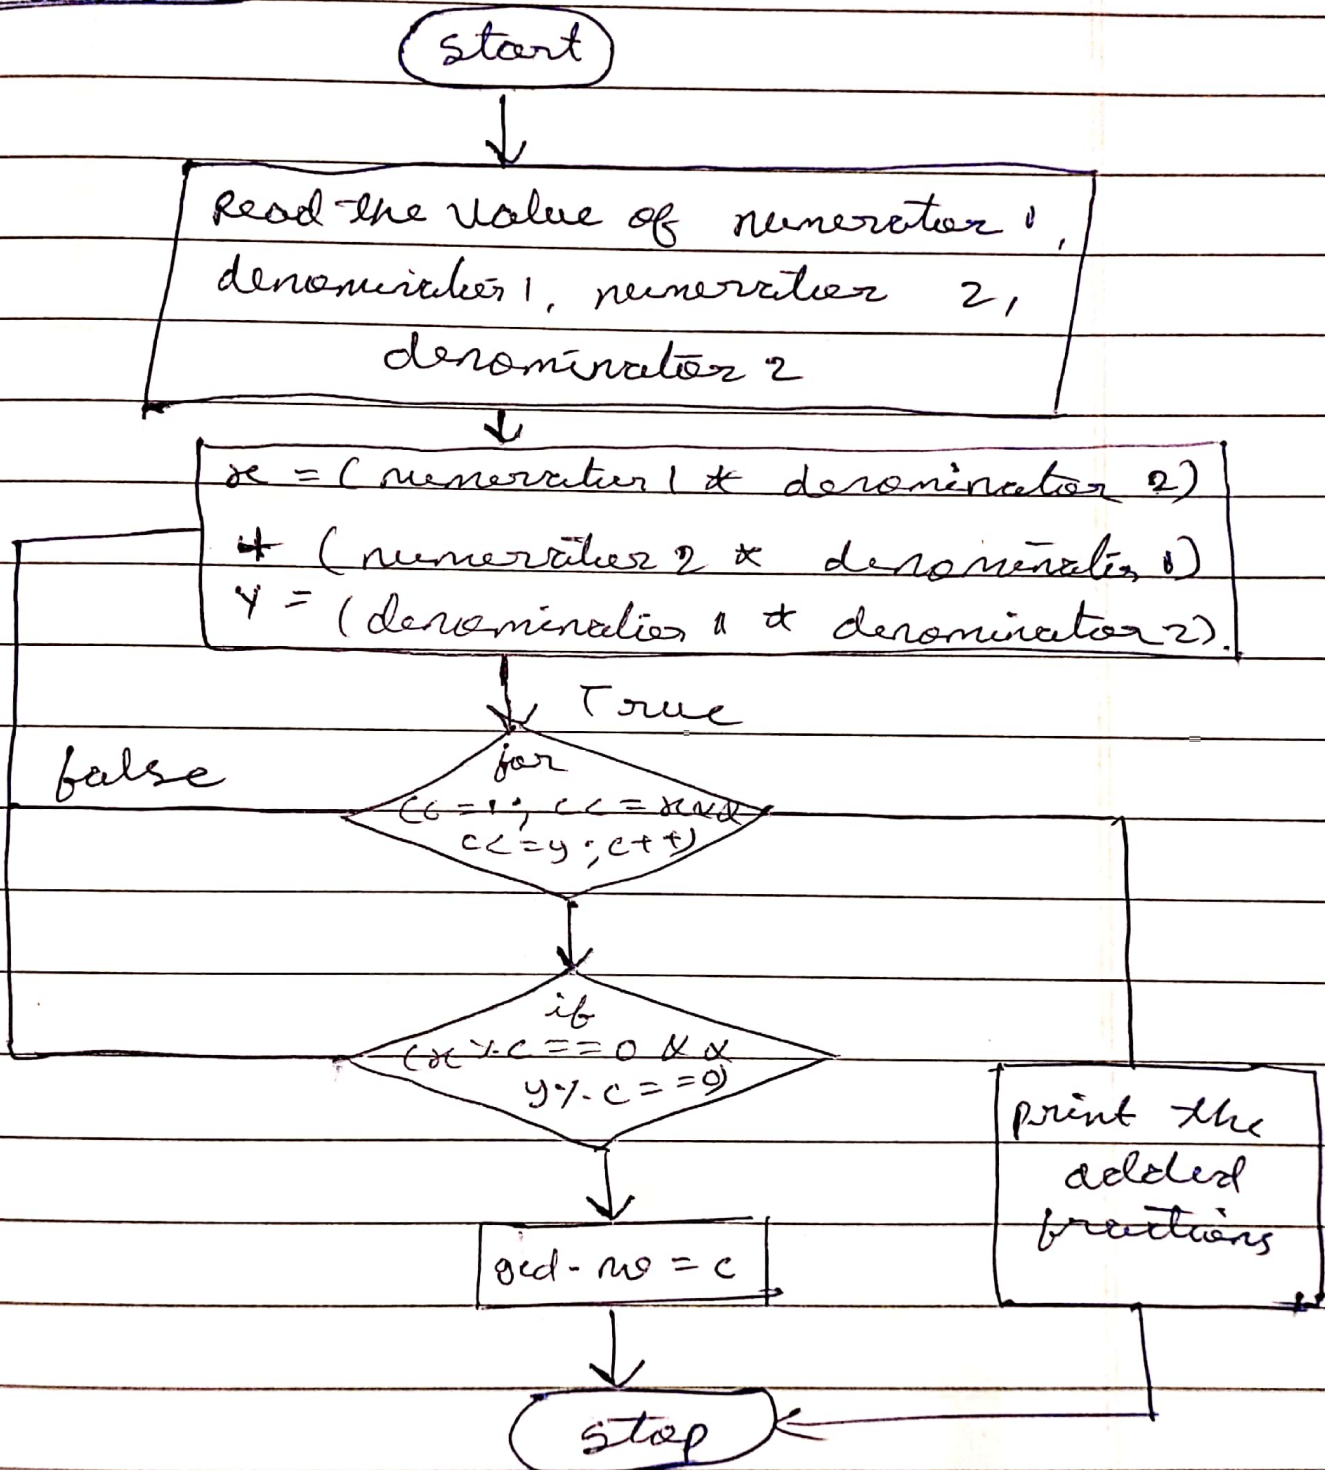 Start
Read the value of numerator 1,
denominator 1, numerator 2,
denominator 2
x = (numerator 1 * denominator 2)
+ (numerator 2 * denominator 1)
y = (denominator 1 * denominator 2).
True
false
for
(c=1; c<=x&&
c<=y; c++)
if
(x%c==0 &&
y%c==0)
print the
added
fractions
gcd-no = c
stop